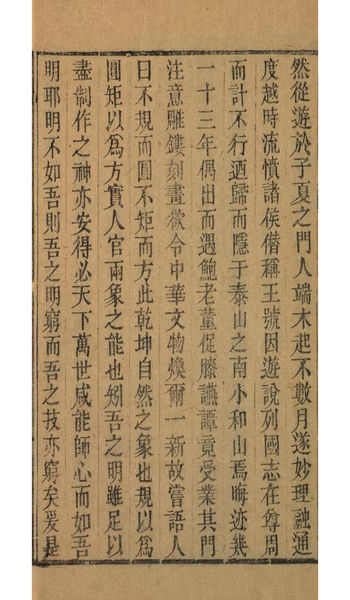 然從遊於子夏之門人端木起不數月遂妙理融通
度越時流憤諸侯僭稱王號因遊說列國志在尊周
而計不行迺歸而隱于泰山之南小和山焉晦迹幾
一十三年偶出而遇鮑老董促膝讌譚竟受業其門
注意雕鏤刻畫欲令中華文物煥爾一新故嘗語人
曰不規而圓不矩而方此乾坤自然之象也規以為
圓矩以為方實人官兩象之能也矧吾之明雖足以
盡制作之神亦安得必天下萬世咸能師心而如吾
明耶明不如吾則吾之明窮而吾之技亦窮矣爰是